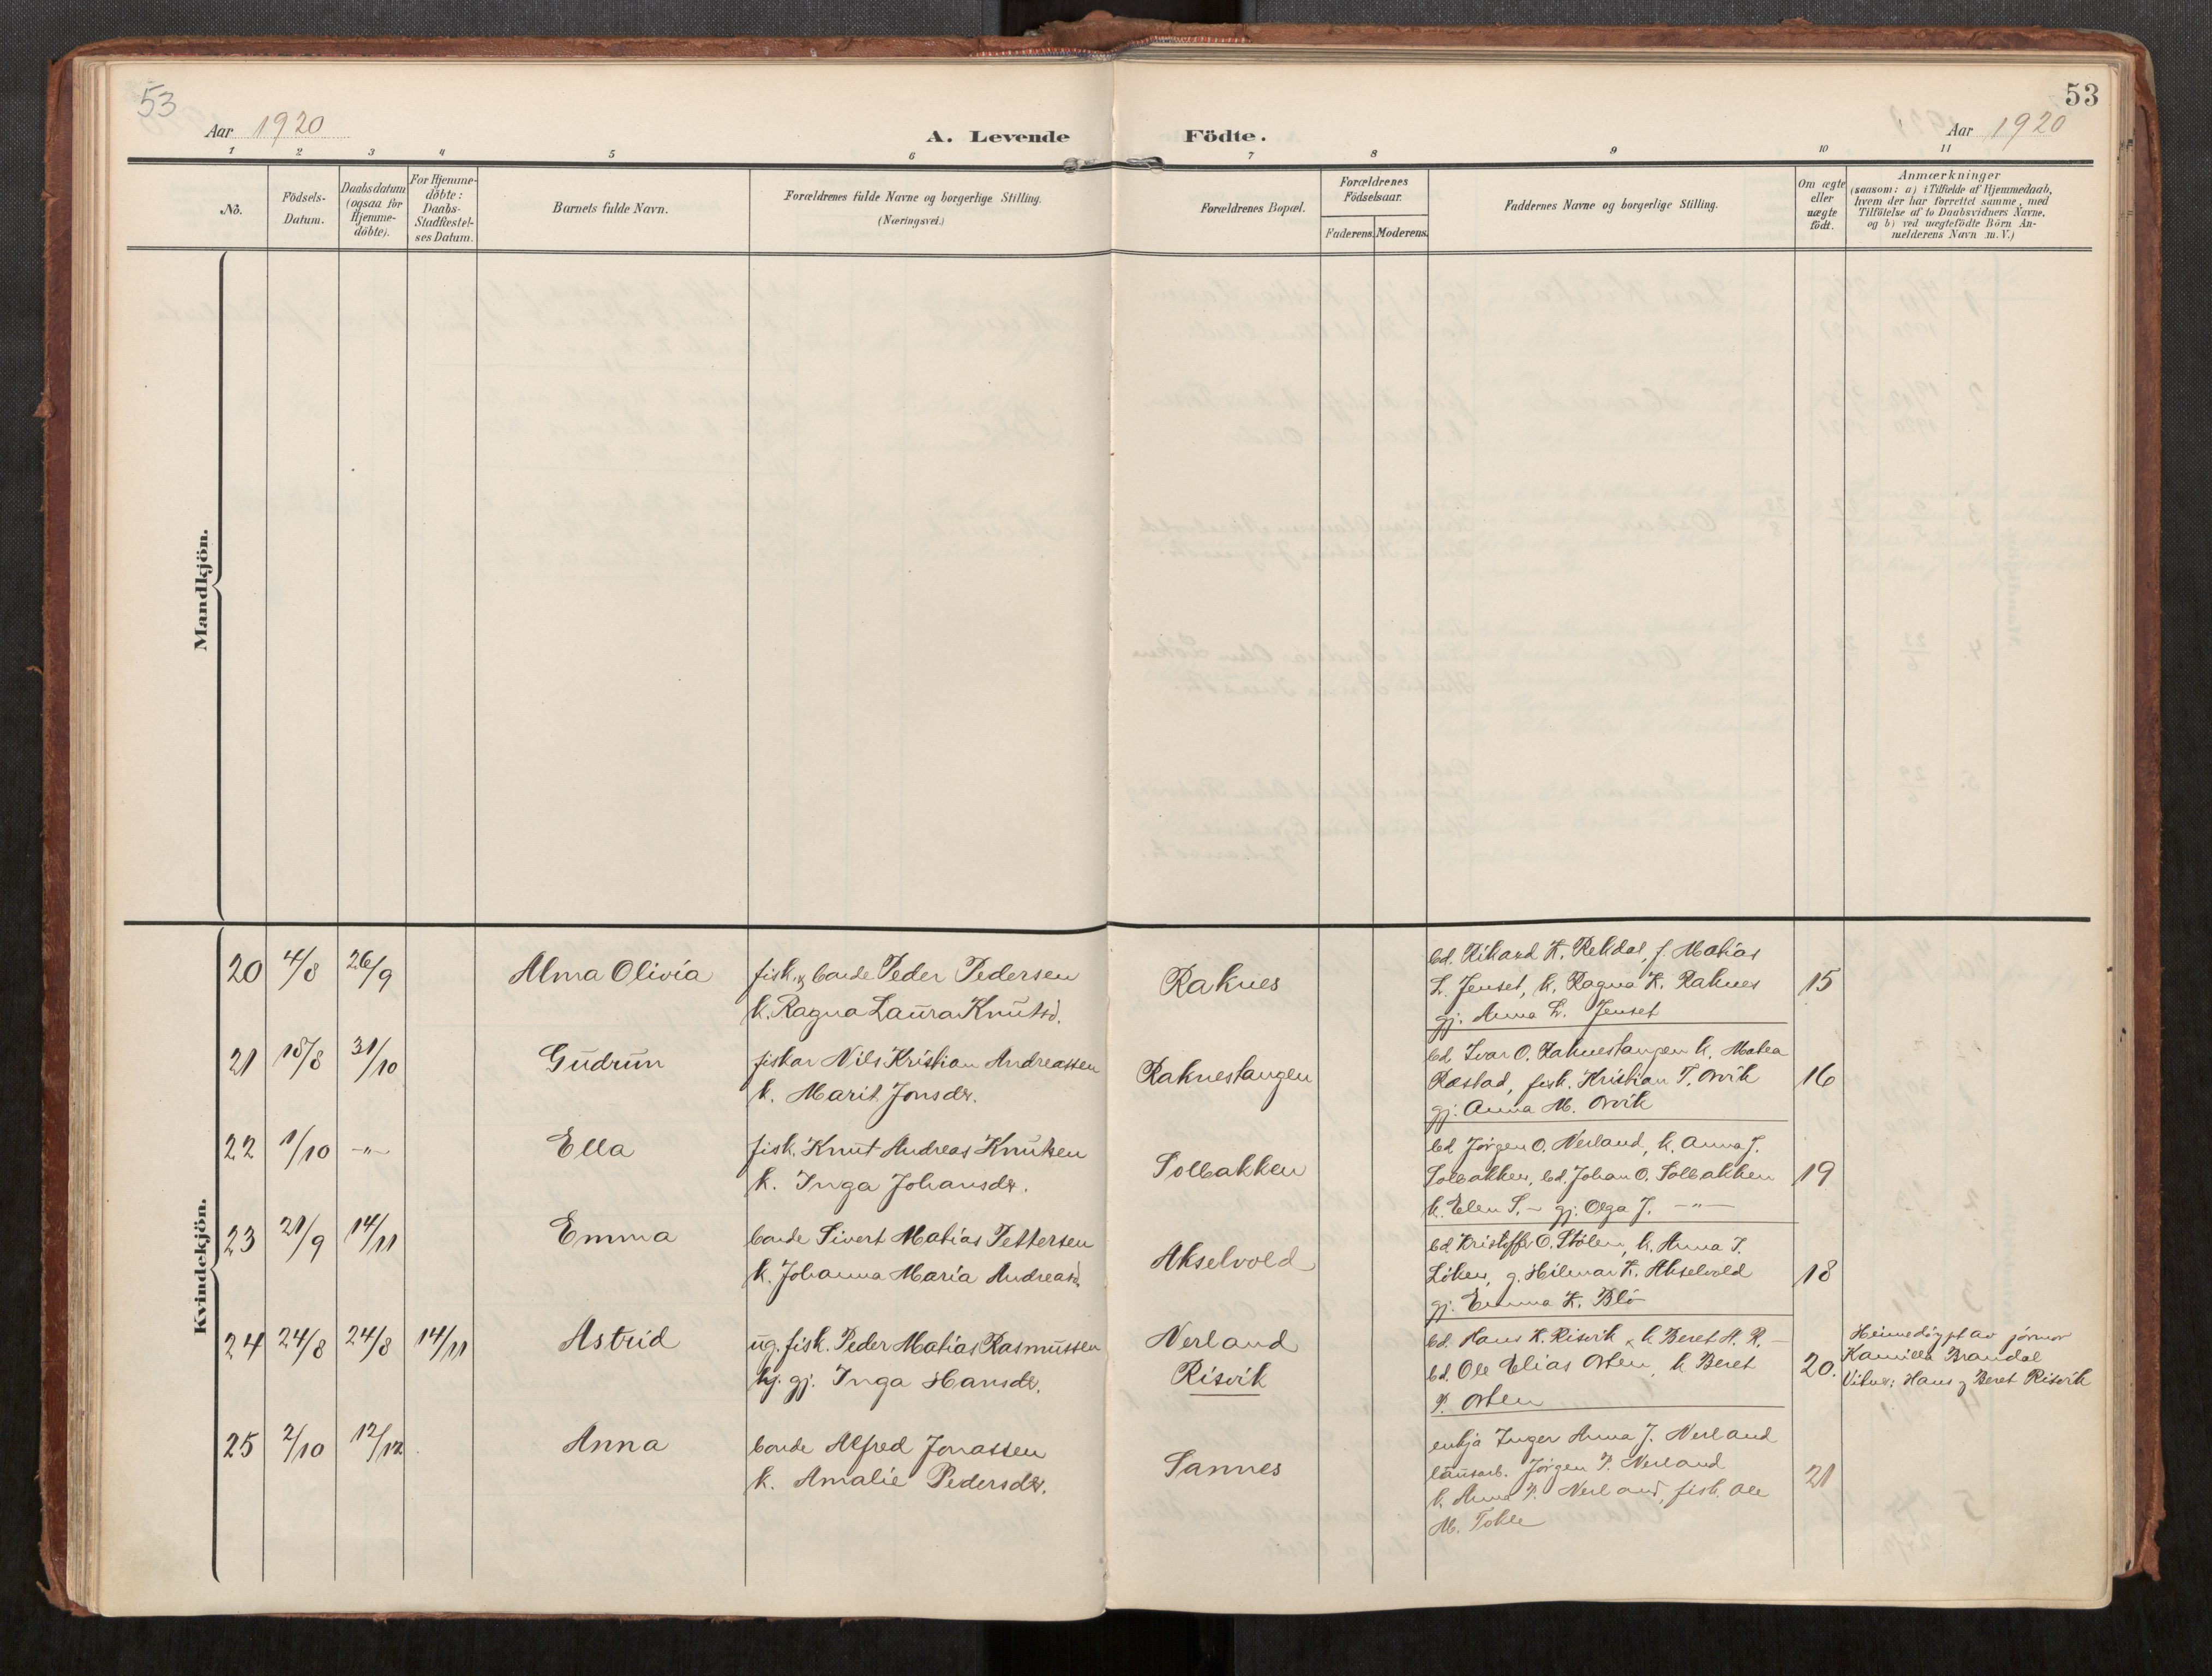 53
53
Aar 1920
A. Levende Födte.
Aar 1920
1 2 3 4 5 6 7 8 9 10 11
No.
Födsels-
Datum.
Daabsdatum
(ogsaa for
Hjemme-
döbte).
For Hjemme-
döbte:
Daabs-
Stadfæstel-
ses Datum.
Barnets fulde Navn.
Forældrenes fulde Navne og borgerlige Stilling.
(Næringsvei.)
Forældrenes Bopæl.
Forældrenes
Födselsaar.
Faderens. Moderens.
Faddernes Navne og borgerlige Stilling.
Om ægte
eller
uægte
födt.
Anmærkninger
(saasom: a) i Tilfælde af Hjemmedaab,
hvem der har forrettet samme, med
Tilföielse af to Daabsvidners Navne,
og b) ved uægtefödte Börn An-
melderens Navn m. V.)
Mandkjön.
Kvindekjön.
20 4/8 26/9 Alma Olivia
fisk. & bonde Peder Pedersen
k. Ragna Laura Knutsd.
Raknes
bd. Rikard K. Rekdal, f. Matias
L. Jenset, k. Ragna K. Raknes
gj. Anna L. Jenset
15
21 18/8 31/10 Gudrun
fiskar Nils Kristian Andreassen
k. Marit Jonsdr.
Raknestangen
bd. Ivar O. Raknestangen k. Matea
Ræstad, fisk. Kristian T. Orvik
gj. Anna M. Orvik
16
22 1/10 -"- Ella
fisk. Knut Andreas Knutsen
k. Inga Johansdr.
Solbakken
bd Jørgen O. Nerland, k. Anna J.
Solbakken, bd. Johan O. Solbakken
k. Elen S. - gj. Olga J. -"-
19
23 21/9 14/11 Emma
bonde Sivert Matias Pettersen
k. Johanna Maria Andreasd.
Akselvold
bd Kristoffer O. Stølen, k. Anna T.
Löken, g. Hilmar K. Akselvold
gj. Emma K. Blö
18
24 24/8 24/8 14/11 Astrid
ug. fisk. Peder Matias Rasmussen
gj. Inga Hansdr.
Nerland
Risvik
bd. Hans K. Risvik & k Beret A. R. -
bd. Ole Elias Orten, k Beret
P. Orten
20.
Heimedøypt av jormor
Kamilla Brandal
Vitner: Hans og Beret Risvik
25 2/10 12/12 Anna
bonde Alfred Jonassen
k. Amalie Pedersdr.
Sannes
enkja Inger Anna J. Nerland
lausarb. Jörgen P. Nerland
k. Anna P. Nerland, fisk. Ole
M. Tokle
21